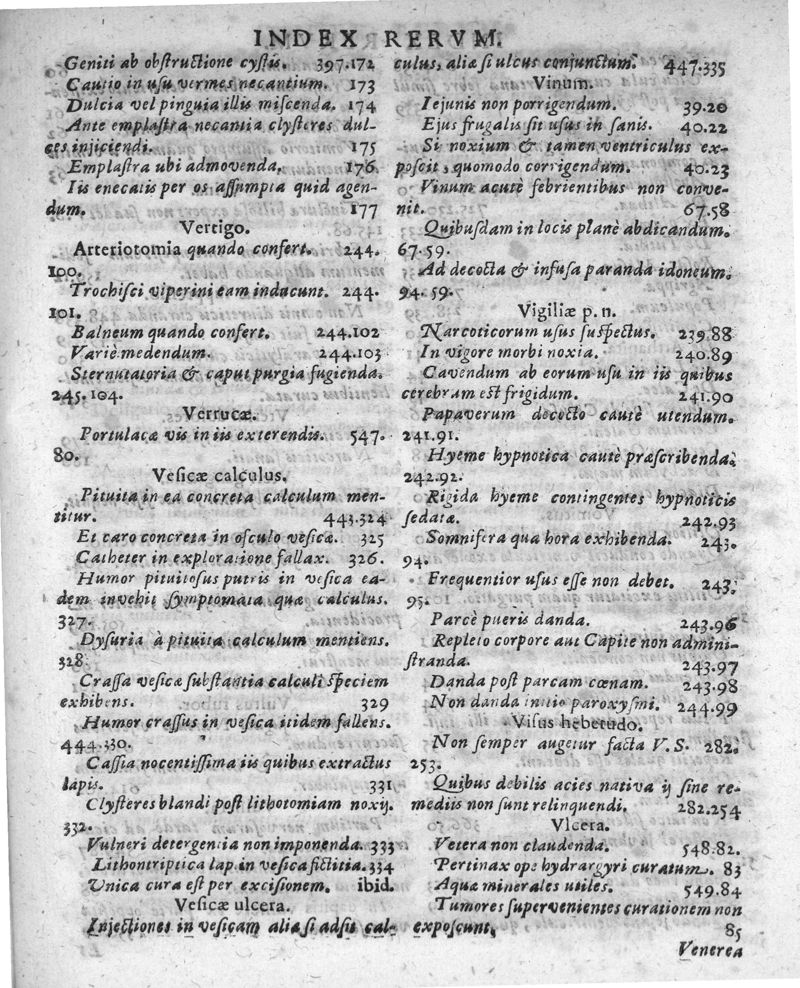 INDEX RERVM.
Geniti ab obſtructione cyſtis. 397.172
Cautio in uſu vermes necantium. 173
Dulcia vel pinguia illis miſcenda. 174
Ante emplaſtra necantia clyſteres dul-
ces injiciendi. 175
Emplaſtra ubi admovenda. 176
Iis enecatis per os aſſumpta quid agen-
dum. 177
Vertigo.
Arteriotomia quando confert. 244.
100.
Trochiſci viperini eam inducunt. 244.
101.
Balneum quando confert. 244.102
Variè medendum. 244.103
Sternutatoria & caput purgia fugienda.
245.104.
Verrucæ.
Portulacæ vis in iis exterendis. 547.
80.
Veſicæ calculus.
Pituita in ea concreta calculum men-
titur. 443.324
Et caro concreta in oſculo veſicæ. 325
Catheter in exploratione fallax. 326.
Humor pituitoſus putris in veſica ea-
dem invehit ſymptomata quæ calculus.
327.
Dyſuria à pituita calculum mentiens.
328.
Craſſa veſicæ ſubſtantia calculi ſpeciem
exhibens. 329
Humor craſſus in veſica itidem fallens.
444.330.
Caſſia nocentiſſima iis quibus extractus
lapis. 331
Clyſteres blandi poſt lithotomiam noxij.
332.
Vulneri detergentia non imponenda. 333
Lithontriptica lap in veſica fictitia. 334
Unica cura eſt per exciſionem. ibid.
Veſicæ ulcera.
Injectiones in veſicam alia ſi adſit cal-
culus, aliæ ſi ulcus conjunctum. 447.335
Vinum.
Iejunis non porrigendum. 39.20
Ejus frugalis ſit uſus in ſanis. 40.22
Si noxium & tamen ventriculus ex-
poſcit, quomodo corrigendum. 40.23
Vinum acutè febrientibus non conve-
nit. 67.58
Quibuſdam in locis planè abdicandum.
67.59.
Ad decocta & infuſa paranda idoneum.
94.59.
Vigiliæ p. n.
Narcoticorum uſus ſuſpectus. 239.88
In vigore morbi noxia. 240.89
Cavendum ab eorum uſu in iis quibus
cerebrum eſt frigidum. 241.90
Papaverum decocto cautè utendum.
241.91.
Hyeme hypnotica cautè præſcribenda.
242.92.
Rigida hyeme contingentes hypnoticis
ſedatæ. 242.93
Somnifera qua hora exhibenda. 243.
94.
Frequentior uſus eſſe non debet. 243.
95.
Parcè pueris danda. 243.96
Repleto corpore aut Capite non admini-
ſtranda. 243.97
Danda poſt parcam cœnam. 243.98
Non danda initio paroxyſmi. 244.99
Viſus hebetudo.
Non ſemper augetur facta V. S. 282.
253.
Quibus debilis acies nativa ij ſine re-
mediis non ſunt relinquendi. 282.254
Vlcera.
Vetera non claudenda. 548.82.
Pertinax ope hydrargyri curatum. 83
Aquæ minerales utiles. 549.84
Tumores ſupervenientes curationem non
expoſcunt. 85
Venerea